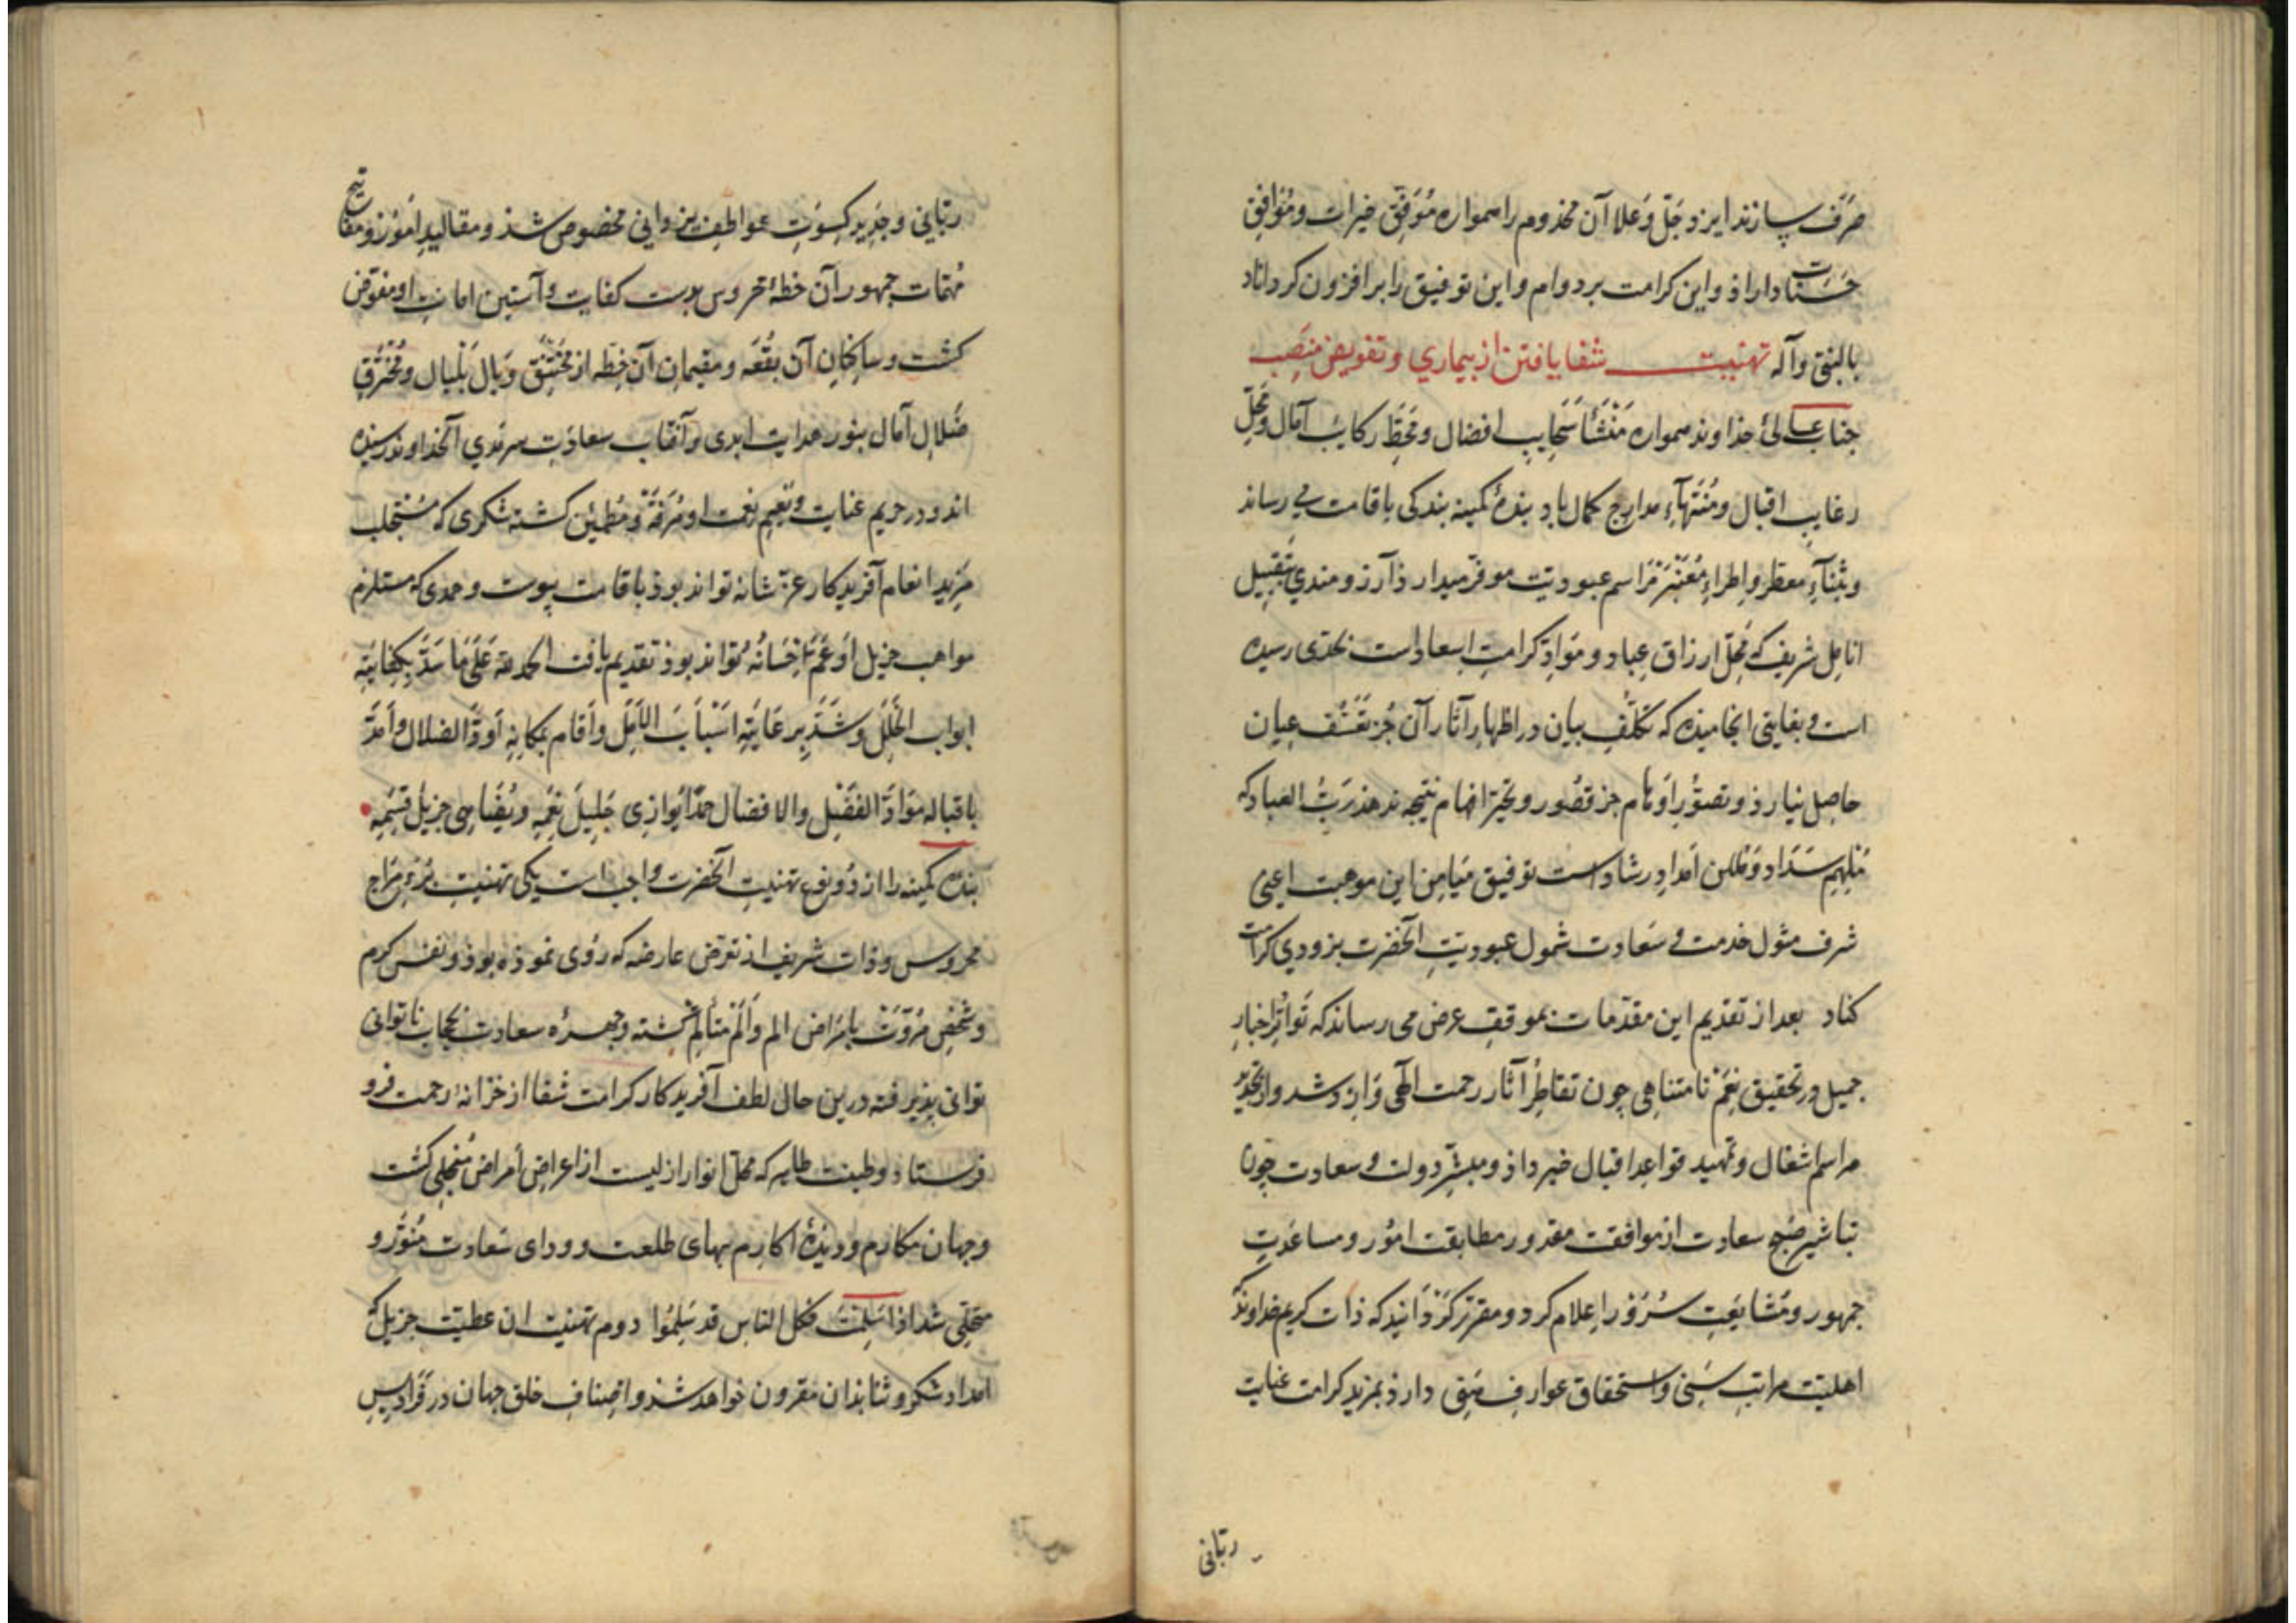 صرف سازند ایزد جل وعلا آن مخدوم را همواره موفق خیرات و موافق
حسنات داراذ و این کرامت بر دوام و این توفیق را بر افزون کرداناد
بالنبی وآله تهنیت شفا یافتن از بیماری و تفویض منصب
جناب عالی خذاوند همواره منشأ سحایب افضال و محط رکایب آمال و محل
رغایب اقبال و منتهاء مدارج کمال باد بندۀ کمینه بندکی باقامت می رساند
و بثناء معطر و اطراء معنبر مراسم عبودیت موفر میدارذ آرزومندی بتقبیل
انامل شریف که محل ارزاق عباد و مواد کرامت اسعاد است بحدی رسیده
است و بغایتی انجامیذه که تکلف بیان در اظهار آثار آن جز تعسف عیان
حاصل نیارذ و تصور اوهام جز قصور و تحیر افهام نتیجه ندهذ رب العباد که
ملهم سداد و امداد رشاد است توفیق میامن این موهبت اعنی
شرف مثول خدمت و سعادت شمول عبودیت آنحضرت بزودی کرامت
کناد بعد از تقدیم این مقدمات بموقف عرض می رساند که تواتر اخبار
جمیل و تحقیق نعم نامتناهی چون تقاطر آثار رحمت الهی وارد شد و از تجدید
مراسم اشغال و تمهید قواعد اقبال خبر داذ و مبشر دولت و سعادت چون
تباشیر صبح سعادت از موافقت مقدور و مطابقت امور و مساعدت
جمهور و مشایعت سرور اعلام کرد و مقرر کردانید که ذات کریم خداوند که
اهلیت مراتب سنی و استحقاق عوارف هنی دارذ بمزید کرامت عنایت
ربانی
ربانی و جدید کسوت عواطف یزدانی مخصوص شذ و مقالید امور و مفاتیح
مهمات جمهور آن خطۀ محروس بدست کفایت و آستین امانت او مفوض
کشت و ساکنان آن بقعه و مقیمان آن خطه از مختنق وبال بلبال و محترق
ضلال آمال بنور هدایت ابدی و آفتاب سعادت سرمدی آنخداوند رسیده
اند و در حریم عنایت و نعیم نعمت او مرفه و مطمئن کشته شکری که مستجلب
مزید انعام آفریدکار عز شانه تواند بوذ باقامت پیوست و حمدی که مستلزم
مواهب جزیل او عم احسانه تواند بوذ تقدیم یافت الحمد لله علی ما سد بکفایته
ابواب الخلل و شد برعایته اسباب الامل و اقام بمکانه اود الضلال و امد
باقباله مواد الفضل والافضال حمدا یوازی جلیل نعمه و یضاهی جزیل قسمه
بنده کمینه را از دو نوع تهنیت آنحضرت واجب است یکی تهنیت برء مزاج
محروس و ذات شریف از تعرض عارضه که روی نموذه بوذ و نفس کرم
و شخص مروت بامراض الم و الم متألم کشته و چهره سعادت بحجاب ناتوانی
توانی پذیرفته درین حال لطف آفریدکار کرامت شفا از خزانۀ رحمت فرو
فرستاد و طینت طاهر که محل انوار ازلیست از اعراض امراض منجلی کشت
و جهان مکارم و دیدۀ اکارم ببهای طلعت و ردای سعادت منور و
متحلی شد اذا سلمت فکل الناس قد سلموا دوم تهنیت ان عطیت جزیل که
امداد شکر و ثنا بذان مقرون خواهد شذ و اصناف خلق جهان در فرادیس